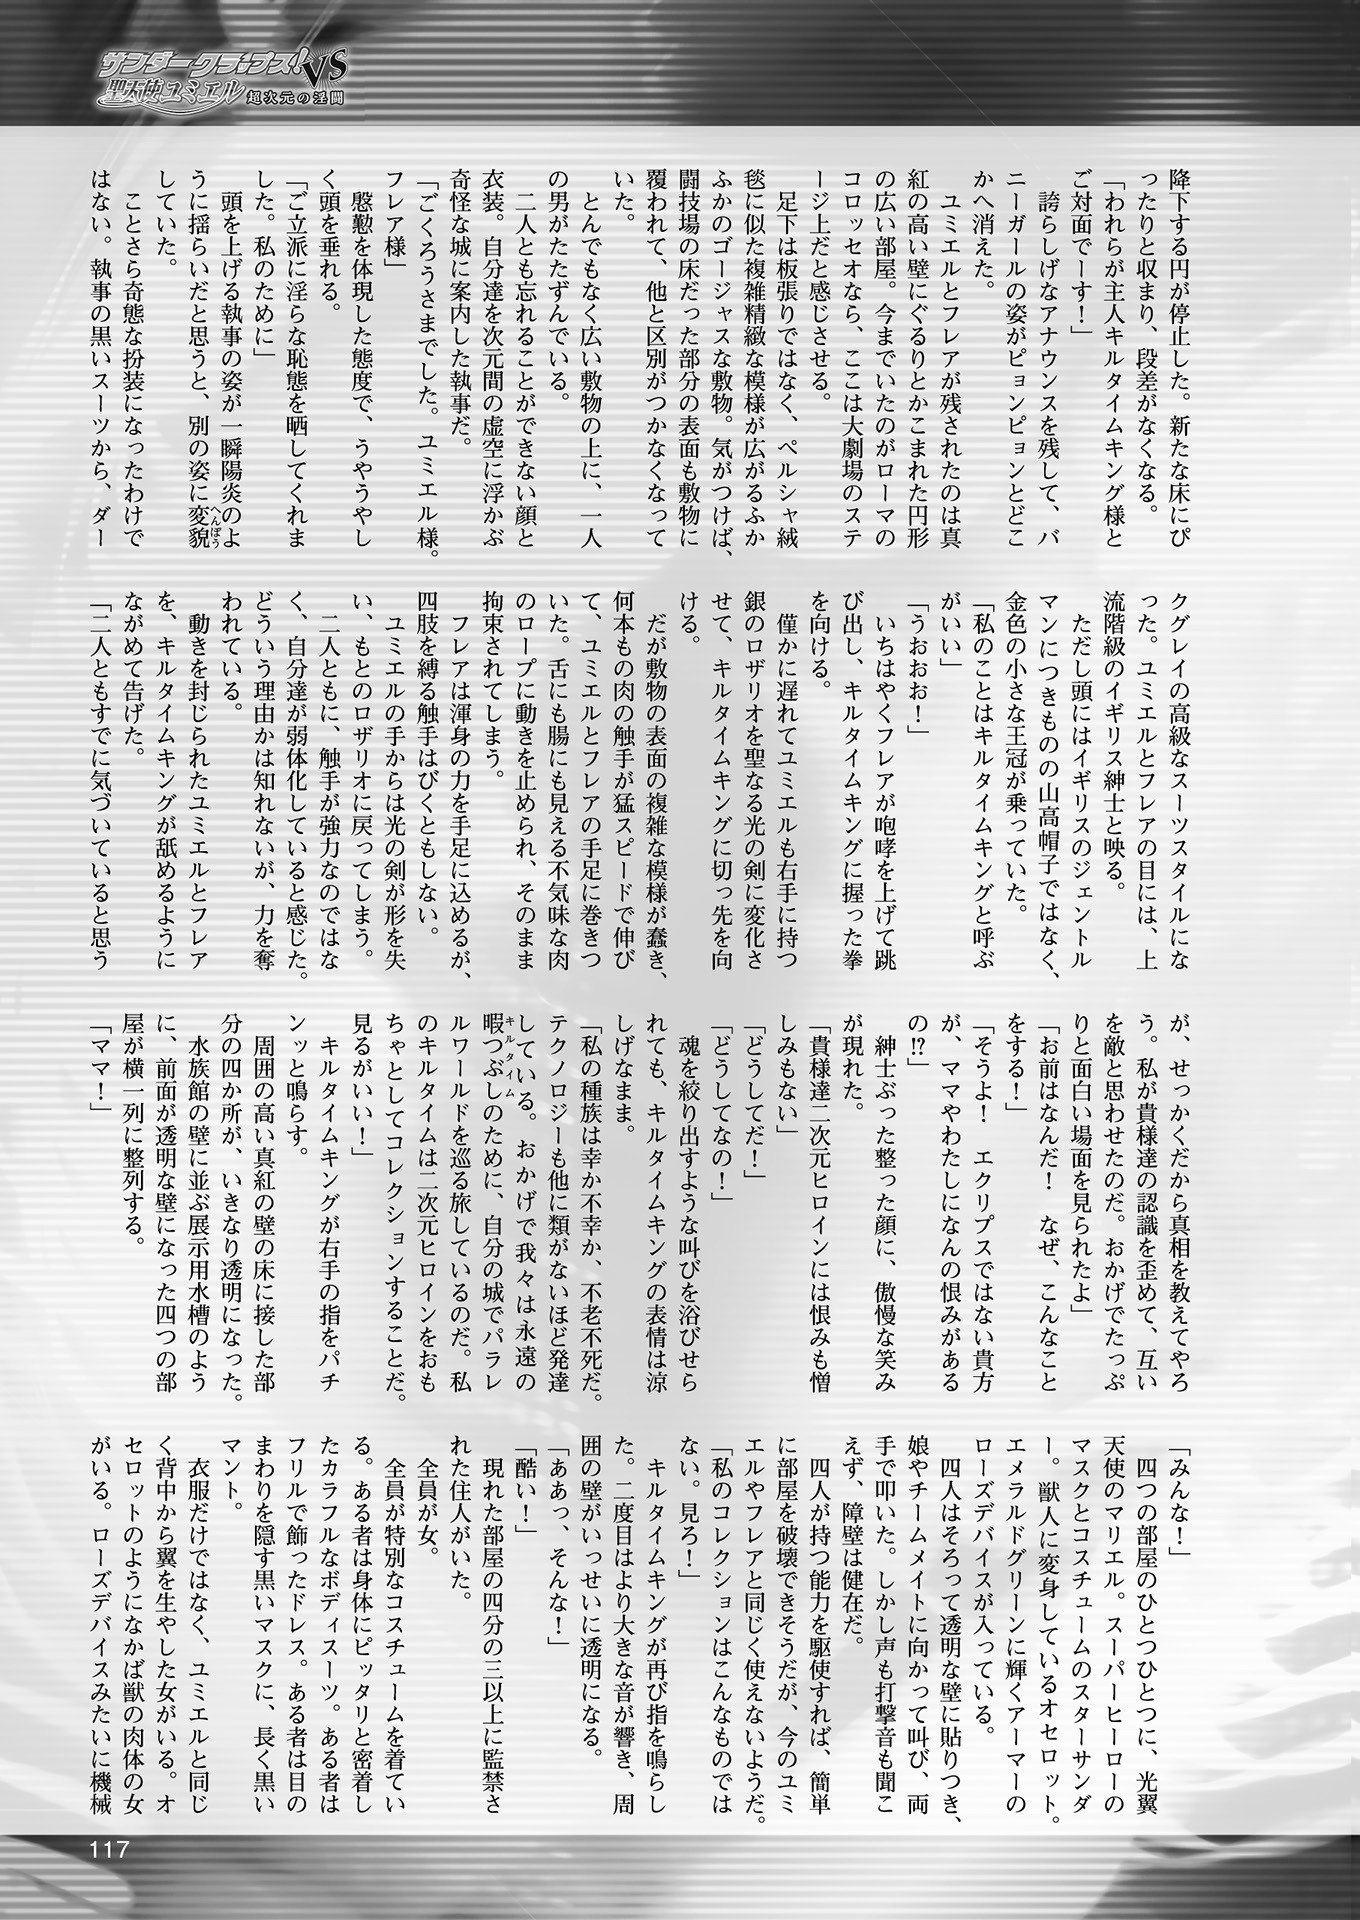 サンダークラップス！VS
聖天使ユミエル 超次元の淫闘
降下する円が停止した。新たな床にぴ
ったりと収まり、段差がなくなる。
「われらが主人キルタイムキング様と
ご対面でーす！」
誇らしげなアナウンスを残して、バ
ニーガールの姿がピョンピョンとどこ
かへ消えた。
ユミエルとフレアが残されたのは真
紅の高い壁にぐるりとかこまれた円形
の広い部屋。今までいたのがローマの
コロッセオなら、ここは大劇場のステ
ージ上だと感じさせる。
足下は板張りではなく、ペルシャ絨
毯に似た複雑精緻な模様が広がるふか
ふかのゴージャスな敷物。気がつけば、
闘技場の床だった部分の表面も敷物に
覆われて、他と区別がつかなくなって
いた。
とんでもなく広い敷物の上に、一人
の男がたたずんでいる。
二人とも忘れることができない顔と
衣装。自分達を次元間の虚空に浮かぶ
奇怪な城に案内した執事だ。
「ごくろうさまでした。ユミエル様。
フレア様」
慇懃を体現した態度で、うやうやし
く頭を垂れる。
「ご立派に淫らな恥態を晒してくれま
した。私のために」
頭を上げる執事の姿が一瞬陽炎のよ
うに揺らいだと思うと、別の姿に変貌へんぼう
していた。
ことさら奇態な扮装になったわけで
はない。執事の黒いスーツから、ダー
クグレイの高級なスーツスタイルにな
った。ユミエルとフレアの目には、上
流階級のイギリス紳士と映る。
ただし頭にはイギリスのジェントル
マンにつきものの山高帽子ではなく、
金色の小さな王冠が乗っていた。
「私のことはキルタイムキングと呼ぶ
がいい」
「うおおお！」
いちはやくフレアが咆哮を上げて跳
び出し、キルタイムキングに握った拳
を向ける。
僅かに遅れてユミエルも右手に持つ
銀のロザリオを聖なる光の剣に変化さ
せて、キルタイムキングに切っ先を向
ける。
だが敷物の表面の複雑な模様が蠢き、
何本もの肉の触手が猛スピードで伸び
て、ユミエルとフレアの手足に巻きつ
いた。舌にも腸にも見える不気味な肉
のロープに動きを止められ、そのまま
拘束されてしまう。
フレアは渾身の力を手足に込めるが、
四肢を縛る触手はびくともしない。
ユミエルの手からは光の剣が形を失
い、もとのロザリオに戻ってしまう。
二人ともに、触手が強力なのではな
く、自分達が弱体化していると感じた。
どういう理由かは知れないが、力を奪
われている。
動きを封じられたユミエルとフレア
を、キルタイムキングが舐めるように
ながめて告げた。
「二人ともすでに気づいていると思う
が、せっかくだから真相を教えてやろ
う。私が貴様達の認識を歪めて、互い
を敵と思わせたのだ。おかげでたっぷ
りと面白い場面を見られたよ」
「お前はなんだ！　なぜ、こんなこと
をする！」
「そうよ！　エクリプスではない貴方
が、ママやわたしになんの恨みがある
の!?」
紳士ぶった整った顔に、傲慢な笑み
が現れた。
「貴様達二次元ヒロインには恨みも憎
しみもない」
「どうしてだ！」
「どうしてなの！」
魂を絞り出すような叫びを浴びせら
れても、キルタイムキングの表情は涼
しげなまま。
「私の種族は幸か不幸か、不老不死だ。
テクノロジーも他に類がないほど発達
している。おかげで我々は永遠の
暇つぶしキルタイムのために、自分の城でパラレ
ルワールドを巡る旅しているのだ。私
のキルタイムは二次元ヒロインをおも
ちゃとしてコレクションすることだ。
見るがいい！」
キルタイムキングが右手の指をパチ
ンッと鳴らす。
周囲の高い真紅の壁の床に接した部
分の四か所が、いきなり透明になった。
水族館の壁に並ぶ展示用水槽のよう
に、前面が透明な壁になった四つの部
屋が横一列に整列する。
「ママ！」
「みんな！」
四つの部屋のひとつひとつに、光翼
天使のマリエル。スーパーヒーローの
マスクとコスチュームのスターサンダ
ー。獣人に変身しているオセロット。
エメラルドグリーンに輝くアーマーの
ローズデバイスが入っている。
四人はそろって透明な壁に貼りつき、
娘やチームメイトに向かって叫び、両
手で叩いた。しかし声も打撃音も聞こ
えず、障壁は健在だ。
四人が持つ能力を駆使すれば、簡単
に部屋を破壊できそうだが、今のユミ
エルやフレアと同じく使えないようだ。
「私のコレクションはこんなものでは
ない。見ろ！」
キルタイムキングが再び指を鳴らし
た。二度目はより大きな音が響き、周
囲の壁がいっせいに透明になる。
「ああっ、そんな！」
「酷い！」
現れた部屋の四分の三以上に監禁さ
れた住人がいた。
全員が女。
全員が特別なコスチュームを着てい
る。ある者は身体にピッタリと密着し
たカラフルなボディスーツ。ある者は
フリルで飾ったドレス。ある者は目の
まわりを隠す黒いマスクに、長く黒い
マント。
衣服だけではなく、ユミエルと同じ
く背中から翼を生やした女がいる。オ
セロットのようになかば獣の肉体の女
がいる。ローズデバイスみたいに機械
117